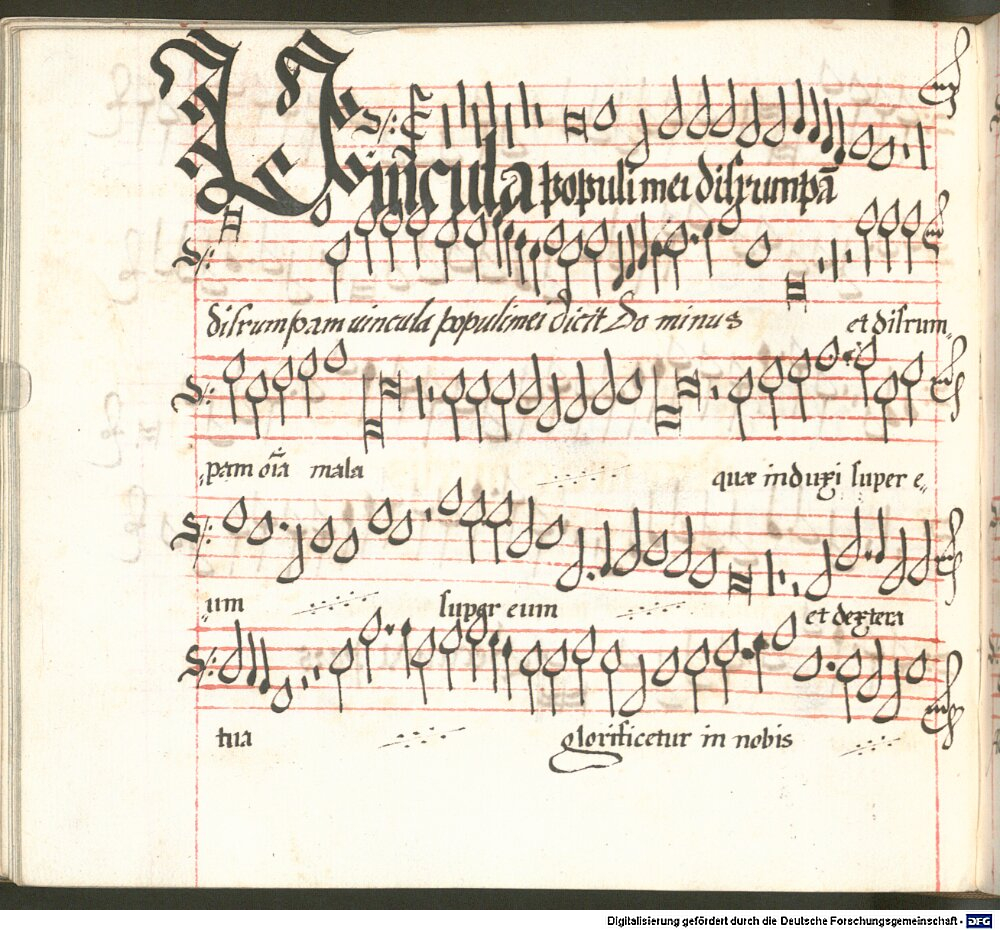 Vincula populi mei disrumpā
disrumpam vincula populi mei dicit Do minus et disrum
pam oīa mala quæ induxi super e
um super eum et dextera
tua glorificetur in nobis
Digitalisierung gefördert durch die Deutsche Forschungsgemeinschaft - DFG